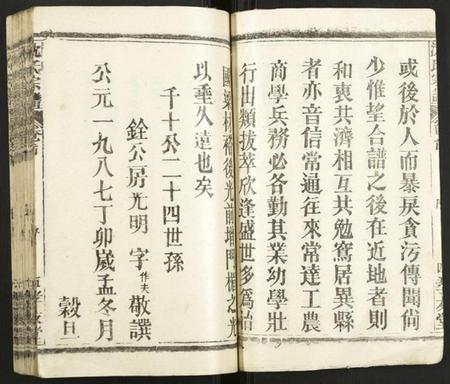 或後於人而暴戾貪污傳聞尚
少惟望合譜之後在近地者則
和衷共濟相互共勉寓居異縣
者亦音信常通往來常達工農
商學兵務必各勤其業幼學壯
行出類拔萃欣逢盛世多爲治
國樑棟裕後光前增門楣之光
以垂久遠也矣
千十公二十四世孫
銓公房光明 字作夫 敬譔
公元一九八七丁卯歲孟冬月
穀旦